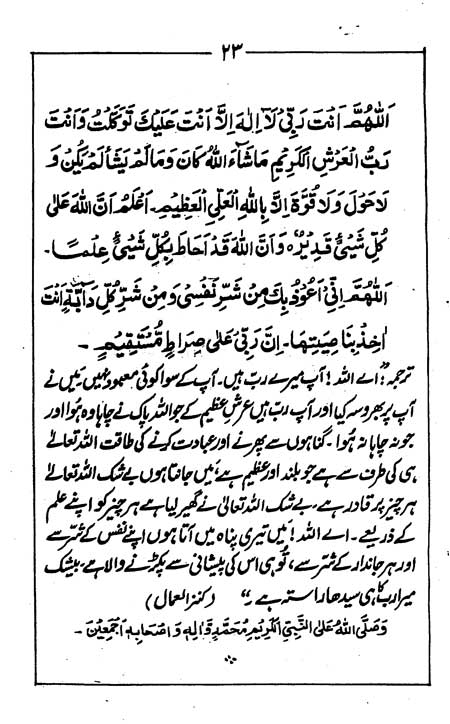 ۲۳
اَللّٰهُمَّ اَنْتَ رَبِّیْ لَاۤ اِلٰهَ اِلَّا اَنْتَ عَلَیْكَ تَوَكَّلْتُ وَاَنْتَ
رَبُّ الْعَرْشِ الْكَرِیْمِ مَاشَآءَ اللّٰهُ كَانَ وَمَالَمْ یَشَأْ لَمْ یَكُنْ وَ
لَاحَوْلَ وَلَا قُوَّةَ اِلَّا بِاللّٰهِ الْعَلِیِّ الْعَظِیْمِ۔ اَعْلَمُ اَنَّ اللّٰهَ عَلٰی
كُلِّ شَیْئٍ قَدِیْرٌ وَاَنَّ اللّٰهَ قَدْ اَحَاطَ بِكُلِّ شَیْئٍ عِلْمًا۔
اَللّٰهُمَّ اِنِّیْ اَعُوْذُ بِكَ مِنْ شَرِّ نَفْسِیْ وَمِنْ شَرِّ كُلِّ دَآبَّةٍ اَنْتَ
اٰخِذٌ بِنَاصِیَتِهَا۔ اِنَّ رَبِّیْ عَلٰی صِرَاطٍ مُّسْتَقِیْمٍ۔
ترجمہ: ”اے اللہ! آپ میرے رب ہیں۔ آپ کے سوا کوئی معبود نہیں، میں نے
آپ پر بھروسہ کیا اور آپ رب ہیں عرشِ عظیم کے جو اللہ پاک نے چاہا وہ ہوا اور
جو نہ چاہا نہ ہوا۔ گناہوں سے پھرنے اور عبادت کرنے کی طاقت اللہ تعالٰی
ہی کی طرف سے ہے جو بلند اور عظیم ہے، میں جانتا ہوں بے شک اللہ تعالٰی
ہر چیز پر قادر ہے۔ بے شک اللہ تعالٰی نے گھیر لیا ہے ہر چیز کو اپنے علم
کے ذریعے۔ اے اللہ! میں تیری پناہ میں آتا ہوں اپنے نفس کے شر سے
اور ہر جاندار کے شر سے، تُو ہی اس کی پیشانی سے پکڑنے والا ہے۔ بیشک
میرا رب کا ہی سیدھا راستہ ہے۔“ (کنز العمال)
وَصَلَّی اللّٰهُ عَلَی النَّبِیِّ الْكَرِیْمِ مُحَمَّدٍ وَّاٰلِهٖ وَاَصْحَابِهٖ اَجْمَعِیْنَ۔